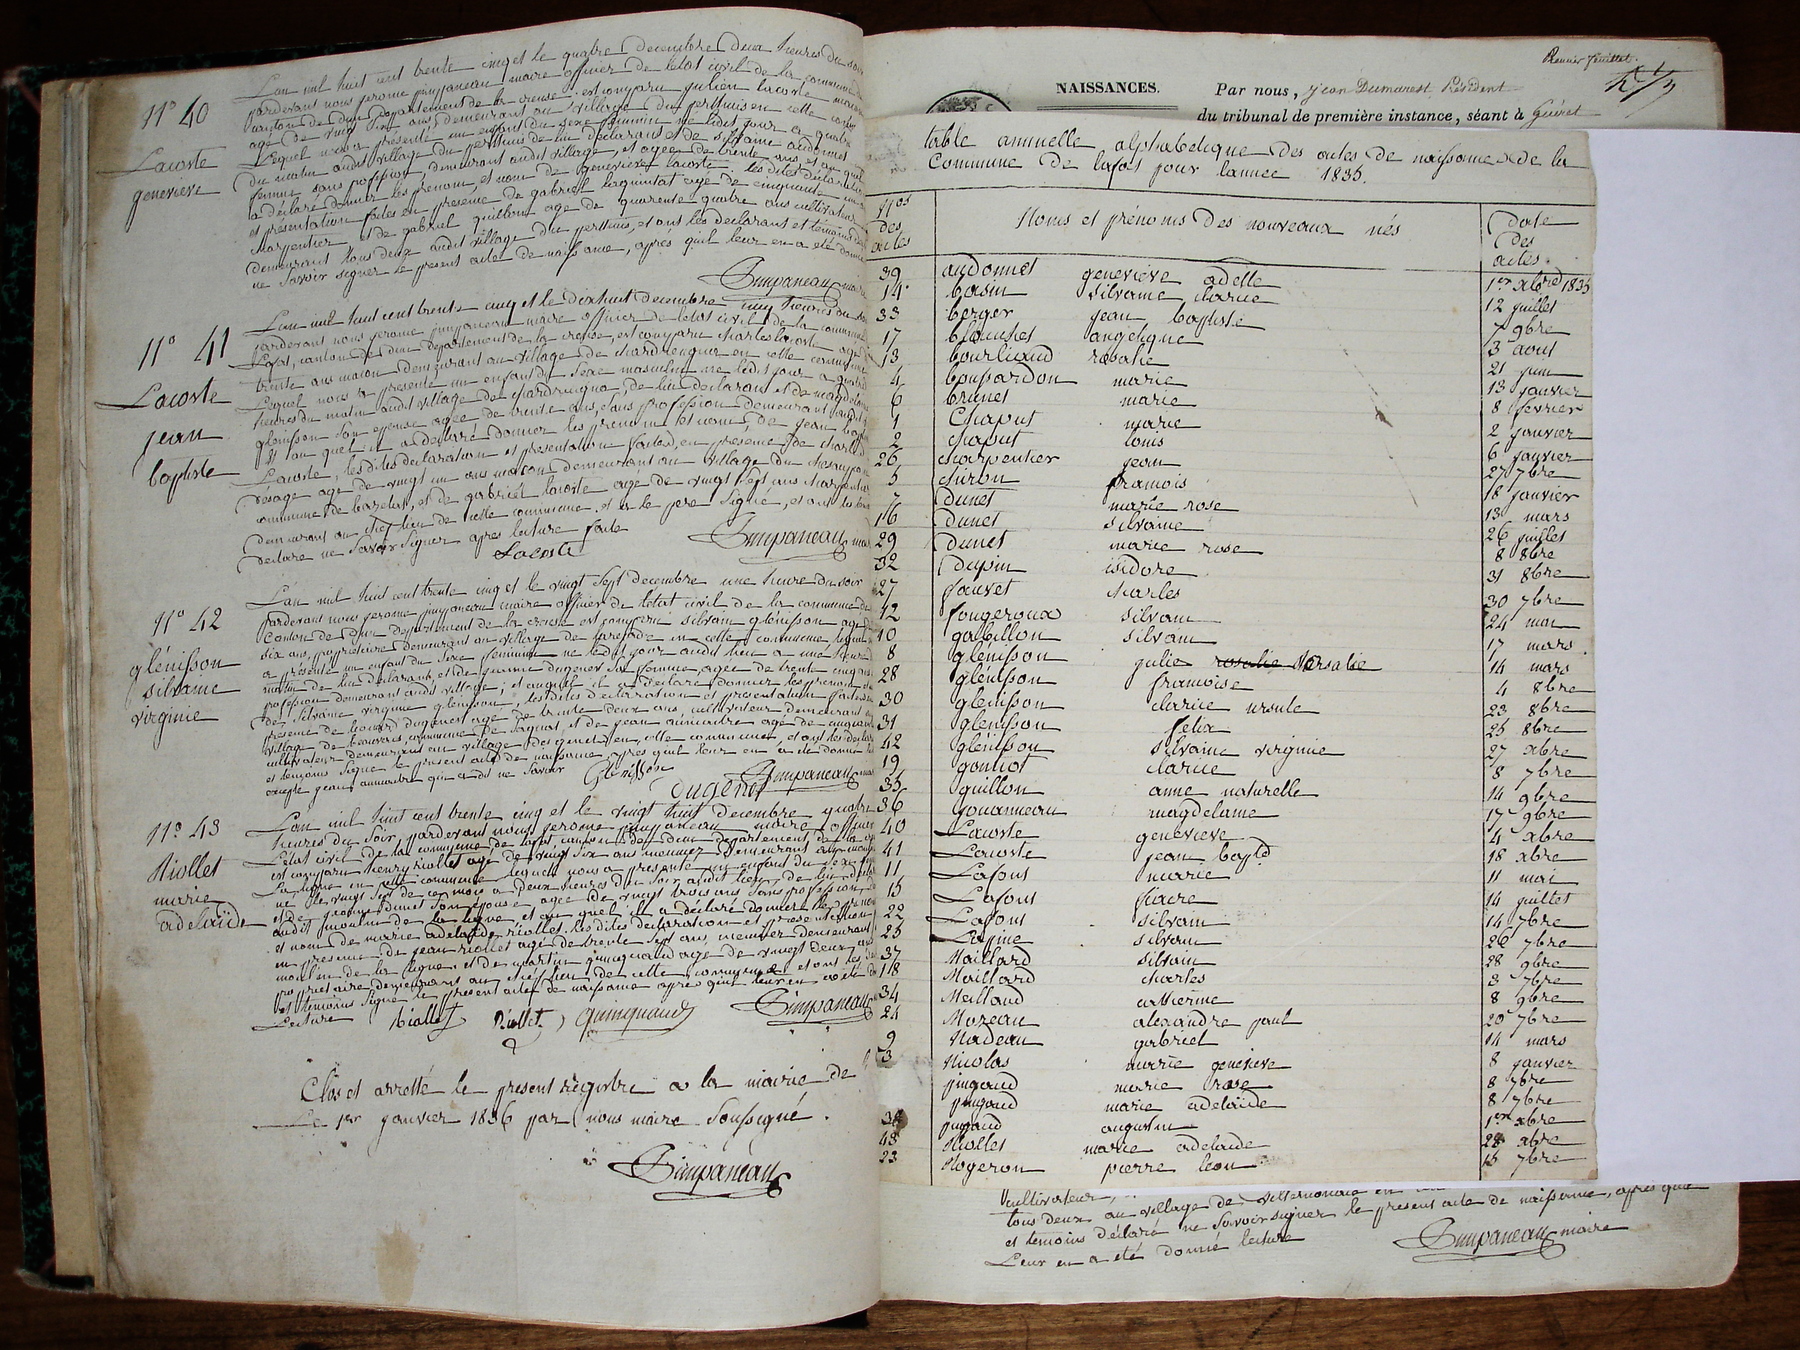 N° 40
Lacoste
genevieve
L'an mil huit cent trente cinq et le quatre decembre deux heures du soir
pardevant nous jerome jimpaneau maire officier de letat civil de la commune de
canton de dun departement de la creuse est comparu julien lacoste macon
age de vingt ans demeurant au village du perthuis en cette commune
Lequel nous a présenté un enfant du sexe feminin né ledit jour a quatre
du matin audit village du perthuis de lui déclarant et de silvaine audonnet
femme sans profession, demeurant audit village, et agee de trente ans, et au quel
a déclaré donner les prenom et nom de genevieve lacoste. les dites déclaration
et présentation faites en presence de gabriel age de cinquante
charpentier et de gabriel guillon age de quarente quatre ans cultivateur
demeurant tous deux audit village du perthuis, et ont les declarant et témoins
ne savoir signer le present acte de naissance, apres quil leur en a été donné
Simpaneau maire
N° 41
Lacoste
jean
baptiste
L'an mil huit cent trente cinq et le dixhuit decembre cinq heures du soir
pardevant nous jerome jimpaneau maire officier de letat civil de la commune
Lafat, canton de dun departement de la creuse, est comparu charles lacoste age de
trente ans macon demeurant au village de chardrengua en cette commune
Lequel nous a presenté un enfant du sexe masculin né ledit jour a quatre
heures du matin audit village de chardrengua, de lui declarant et de magdelaine
glenisson son epouse agée de trente ans, sans profession demeurant audit
et au quel il a declaré donner les prenom et nom, de jean baptiste
Lacoste, les dites declaration et presentation faites, en presence de charles
age de vingt un ans macon demeurant au village du
commune de bazelat, et de gabriel lacoste agé de vingt sept ans charpentier
demeurant au chef lieu de cette commune. et a le pere signé, et ont les temoins
declaré ne savoir signer apres lecture faite
Lacoste Simpaneau maire
N° 42
glénisson
silvaine
virginie
L'an mil huit cent trente cinq et le vingt sept decembre une heure du soir
pardevant nous jerome jimpaneau maire officier de letat civil de la commune de
Canton de Dun Departement de la creuse est comparu silvain glénisson age de
six ans, proprietaire demeurant au village de en cette commune lequel
a présenté un enfant du sexe feminin né ledit jour audit lieu a une heure
matin de lui declarant, et de jeanne dugenest sa femme, agée de trente cinq
profession demeurant audit village; et auquel il a declaré donner les prenom et
de silvaine virginie glenisson, les dites declaration et presentation faites en
presence de leonard dugenest agé de trente deux ans, cultivateur demeurant
village de beauvais, commune de sagnat, et de jean aumaitre age de cinquante
cultivateur demeurant au village des genets en cette commune, et ont les declarant
et temoins signé le present acte de naissance, apres quil leur en a été donné
excepté jean aumaitre qui a dit ne savoir Glénisson Simpaneau maire
dugenest
N° 43
Riollet
marie
adelaïde
L'an mil huit cent trente cinq et le vingt huit decembre quatre
heures du soir, pardevant nous jerome jimpaneau maire officier
Letat civil de la commune de lafat, canton de dun departement de la
est comparu henry riollet agé de vingt six ans meunier demeurant au moulin
La ligne en cette commune lequel nous a presenté un enfant du sexe
né le vingt sept de ce mois a deux heures du soir audit lieu, de lui declarant
et de jeanne dunet son epouse agée de vingt trois ans sans profession,
audit moulin de la ligne, et au quel, il a déclaré donner les prenom
et nom de marie adelaïde riollet. les dites declaration et presentation
en presence de jean riollet agé de trente sept ans, meunier demeurant
moulin de la ligne, et de martin quinquaud age de vingt deux ans
proprietaire demeurant au chef lieu de cette commune et ont les
et temoins signé le present acte de naissance apres quil leur en a été
Lecture Riollet Riollet quinquaud Simpaneau
Clos et arretté le present registre a la mairie de
Le 1er janvier 1836 par nous maire soussigné.
Simpaneau
Premier feuillet
NAISSANCES. Par nous, jean Dumarest Président
du tribunal de première instance, séant à Guéret
table annuelle alphabetique des actes de naissance de la
Commune de lafat pour l'année 1835.
Nos des actes Noms et prénoms des nouveaux nés Date des actes
39 audonnet genevieve adelle 1er xbre 1835
14 basin silvaine clarice 12 juillet
33 berger jean baptiste 7 9bre
17 blanchet angelique 3 aout
13 bourliaud rosalie 21 juin
4 boussardon marie 13 janvier
6 brunet marie 8 fevrier
1 Chaput marie 2 janvier
2 chaput louis 6 janvier
26 charpentier jean 27 7bre
5 chiron francois 18 janvier
7 Dunet marie rose 13 mars
16 Dunet silvaine 26 juillet
29 Dunet marie rose 8 8bre
32 Dupin isidore 31 8bre
27 fauvet charles 30 7bre
12 fougeroux silvain 24 mai
10 gabillon silvain 17 mars
8 glénisson julie rosalie rosalie 14 mars
28 glénisson francoise 4 8bre
30 glénisson clarice ursule 23 8bre
31 glénisson felix 25 8bre
42 glénisson silvaine virginie 27 xbre
19 gonnot clarice 8 7bre
35 guillon anne naturelle 14 9bre
36 jouanneau magdelaine 17 9bre
40 Lacoste genevieve 4 xbre
41 Lacoste jean baptte 18 xbre
11 Lafont marie 11 mai
15 Lafont fiacre 14 juillet
22 Lafont silvain 14 7bre
25 Lapine silvain 26 7bre
37 Maillard silvain 28 9bre
18 Maillard charles 3 7bre
34 Meillaud catherine 8 9bre
24 Mozeau alexandre paul 20 7bre
9 Nadeau gabriel 14 mars
3 Nicolas marie genevieve 8 janvier
pingaud marie rose 8 7bre
pingaud marie adelaide 8 7bre
38 pingaud augustin 1er xbre
43 Riollet marie adelaide 28 xbre
23 Rogeron pierre leon 15 7bre
cultivateur,
tous deux au village de
et temoins déclaré ne savoir signer le present acte de naissance, apres que
Leur en a été donné lecture Simpaneau maire